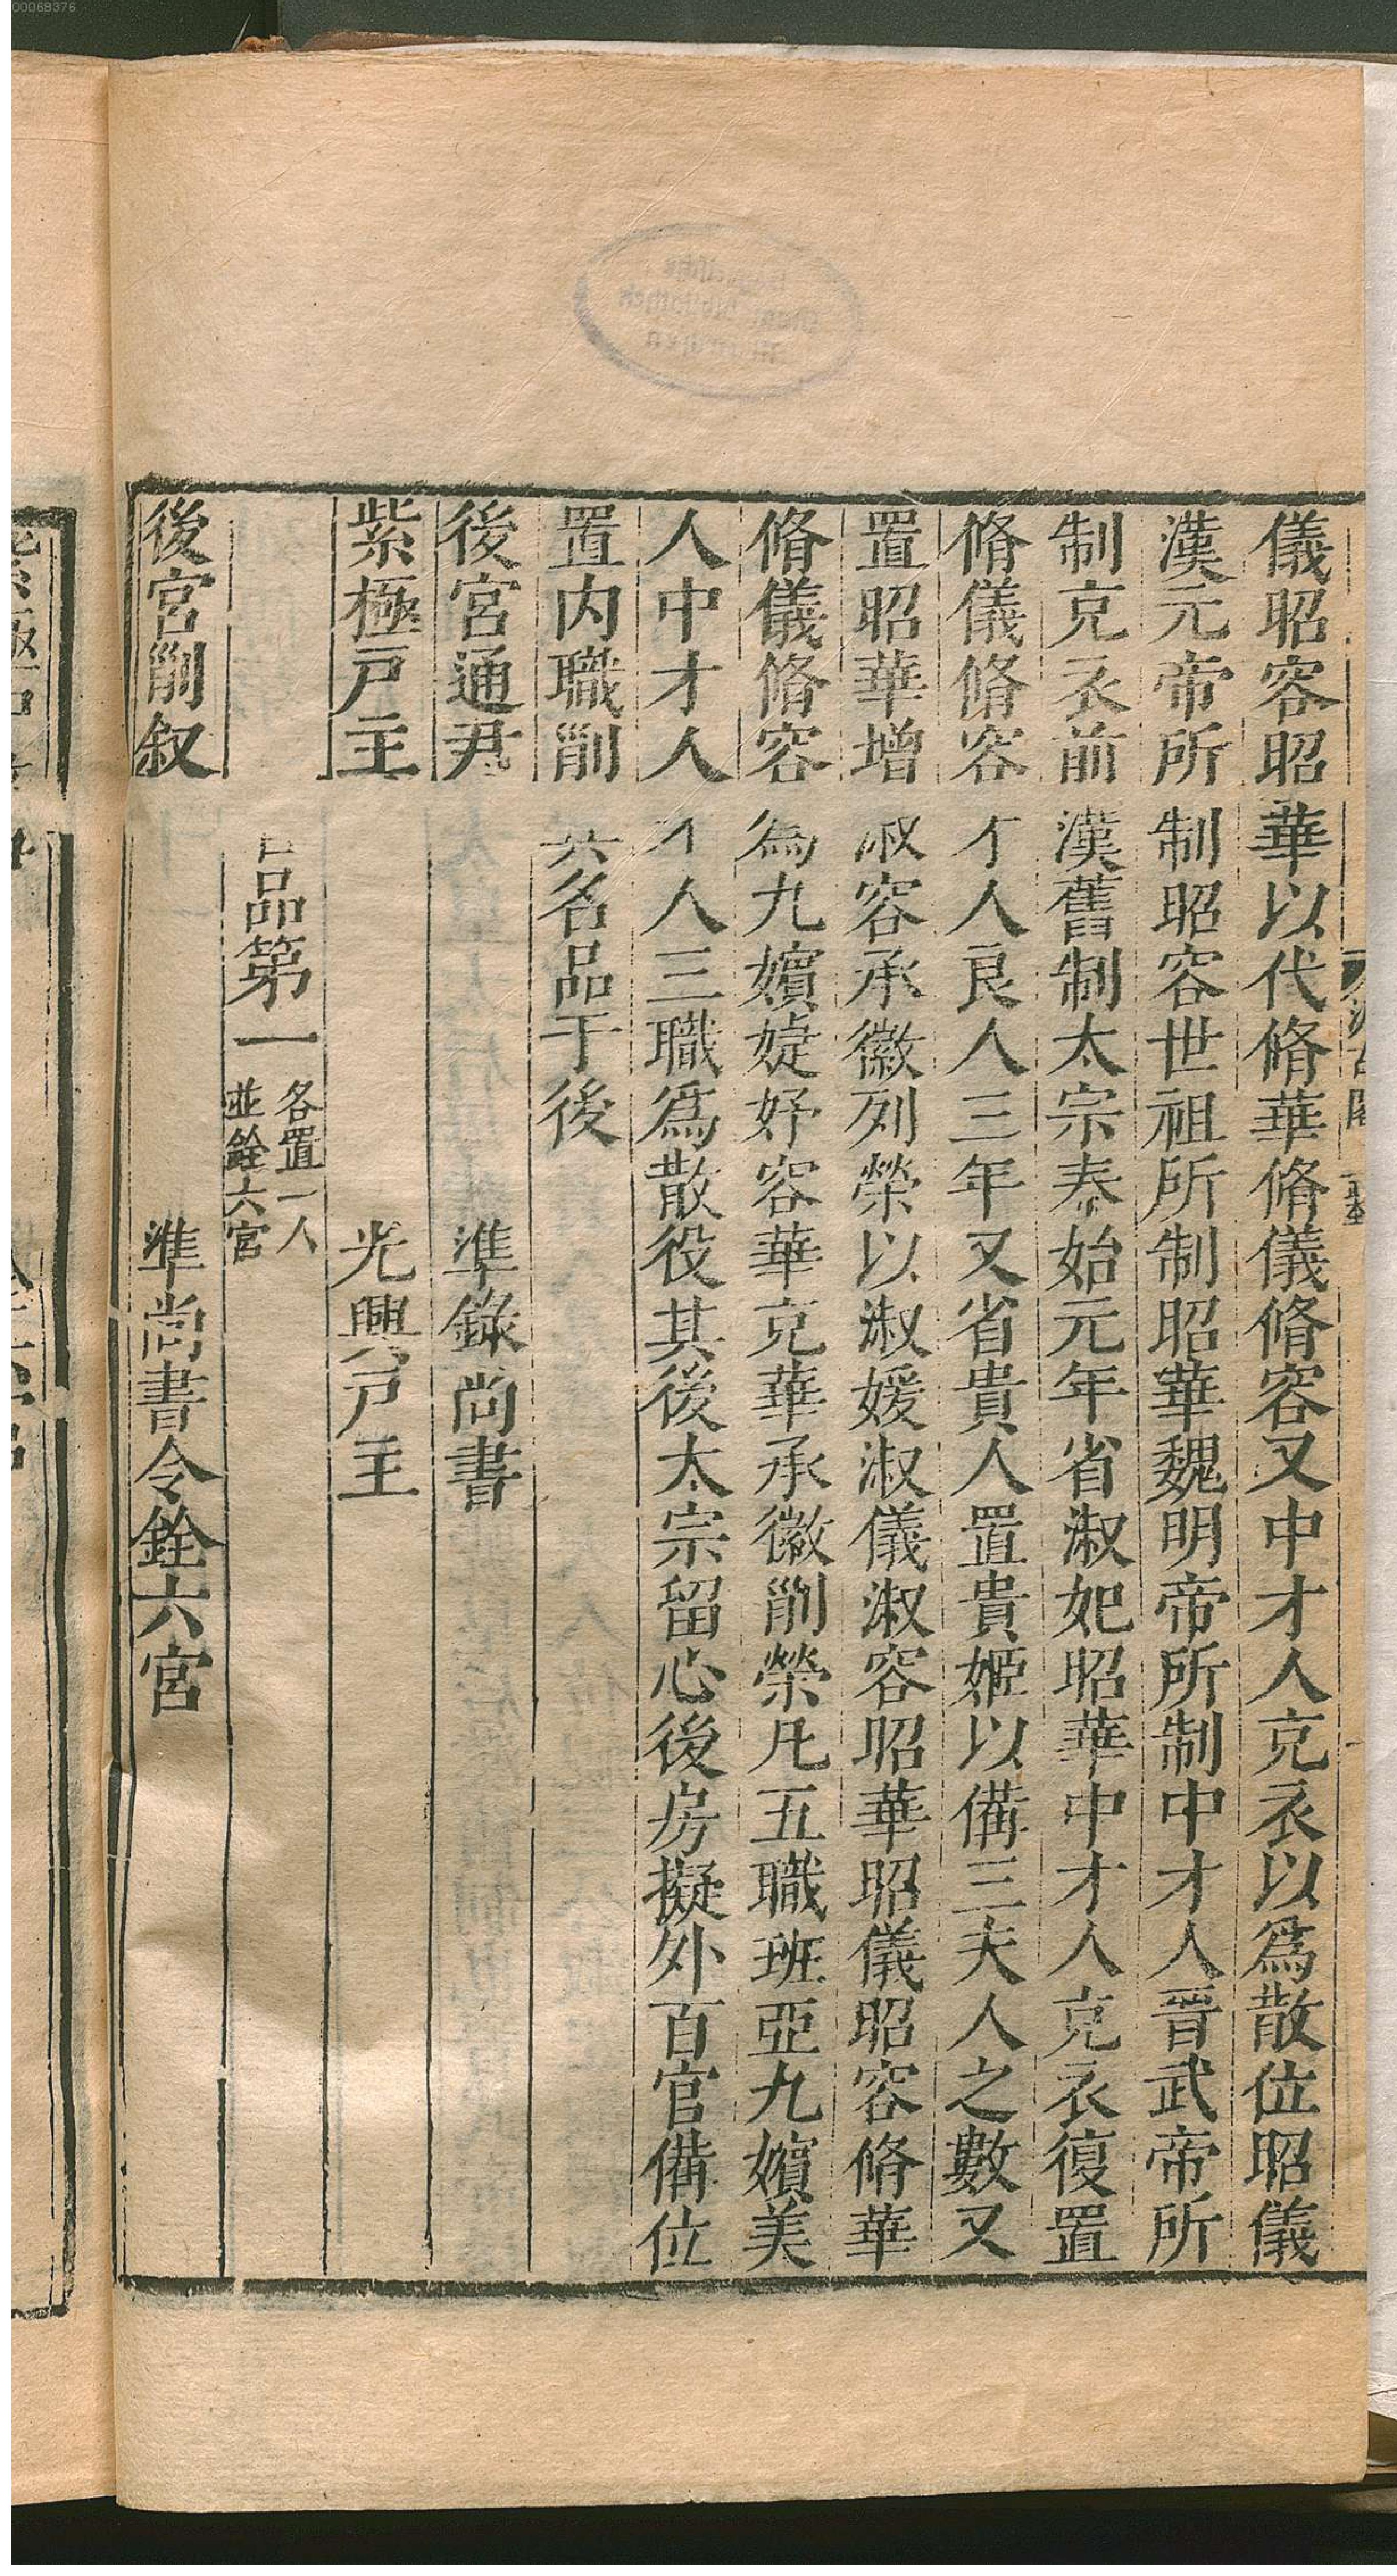 儀昭容昭華以代脩華脩儀脩容又中才人充衣以爲散位昭儀
漢元帝所制昭容世祖所制昭華魏明帝所制中才人晉武帝所
制充衣前漢舊制太宗泰始元年省淑妃昭華中才人充衣復置
脩儀脩容才人良人三年又省貴人置貴姬以備三夫人之數又
置昭華增淑容承徽列榮以淑媛淑儀淑容昭華昭儀昭容脩華
脩儀脩容爲九嬪婕妤容華充華承徽列榮凡五職班亞九嬪美
人中才人才人三職爲散役其後太宗留心後房擬外百官備位
置内職列其名品于後
後宮通尹 準錄尚書
紫極戸主 光興戸主
官品第一 各置一人 並銓六宮
後宮列叙 準尚書令銓六宮
00068376